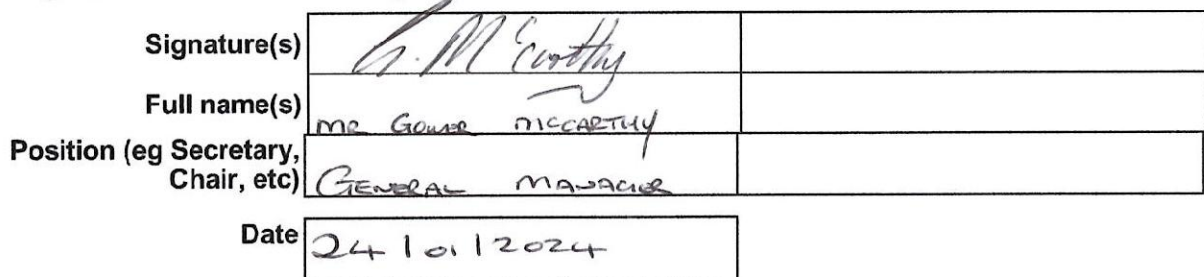 Signature(s) G. McCarthy
Full name(s) MR GOWER MCCARTHY
Position (eg Secretary,
Chair, etc) GENERAL MANAGER
Date 24/01/2024